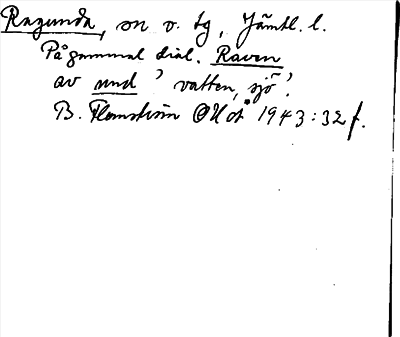 Ragunda, sn o. tg, Jämtl. l.
På gammal dial. Raven
av und 'vatten, sjö'.
B. Flemström OUOt 1943:32 f.